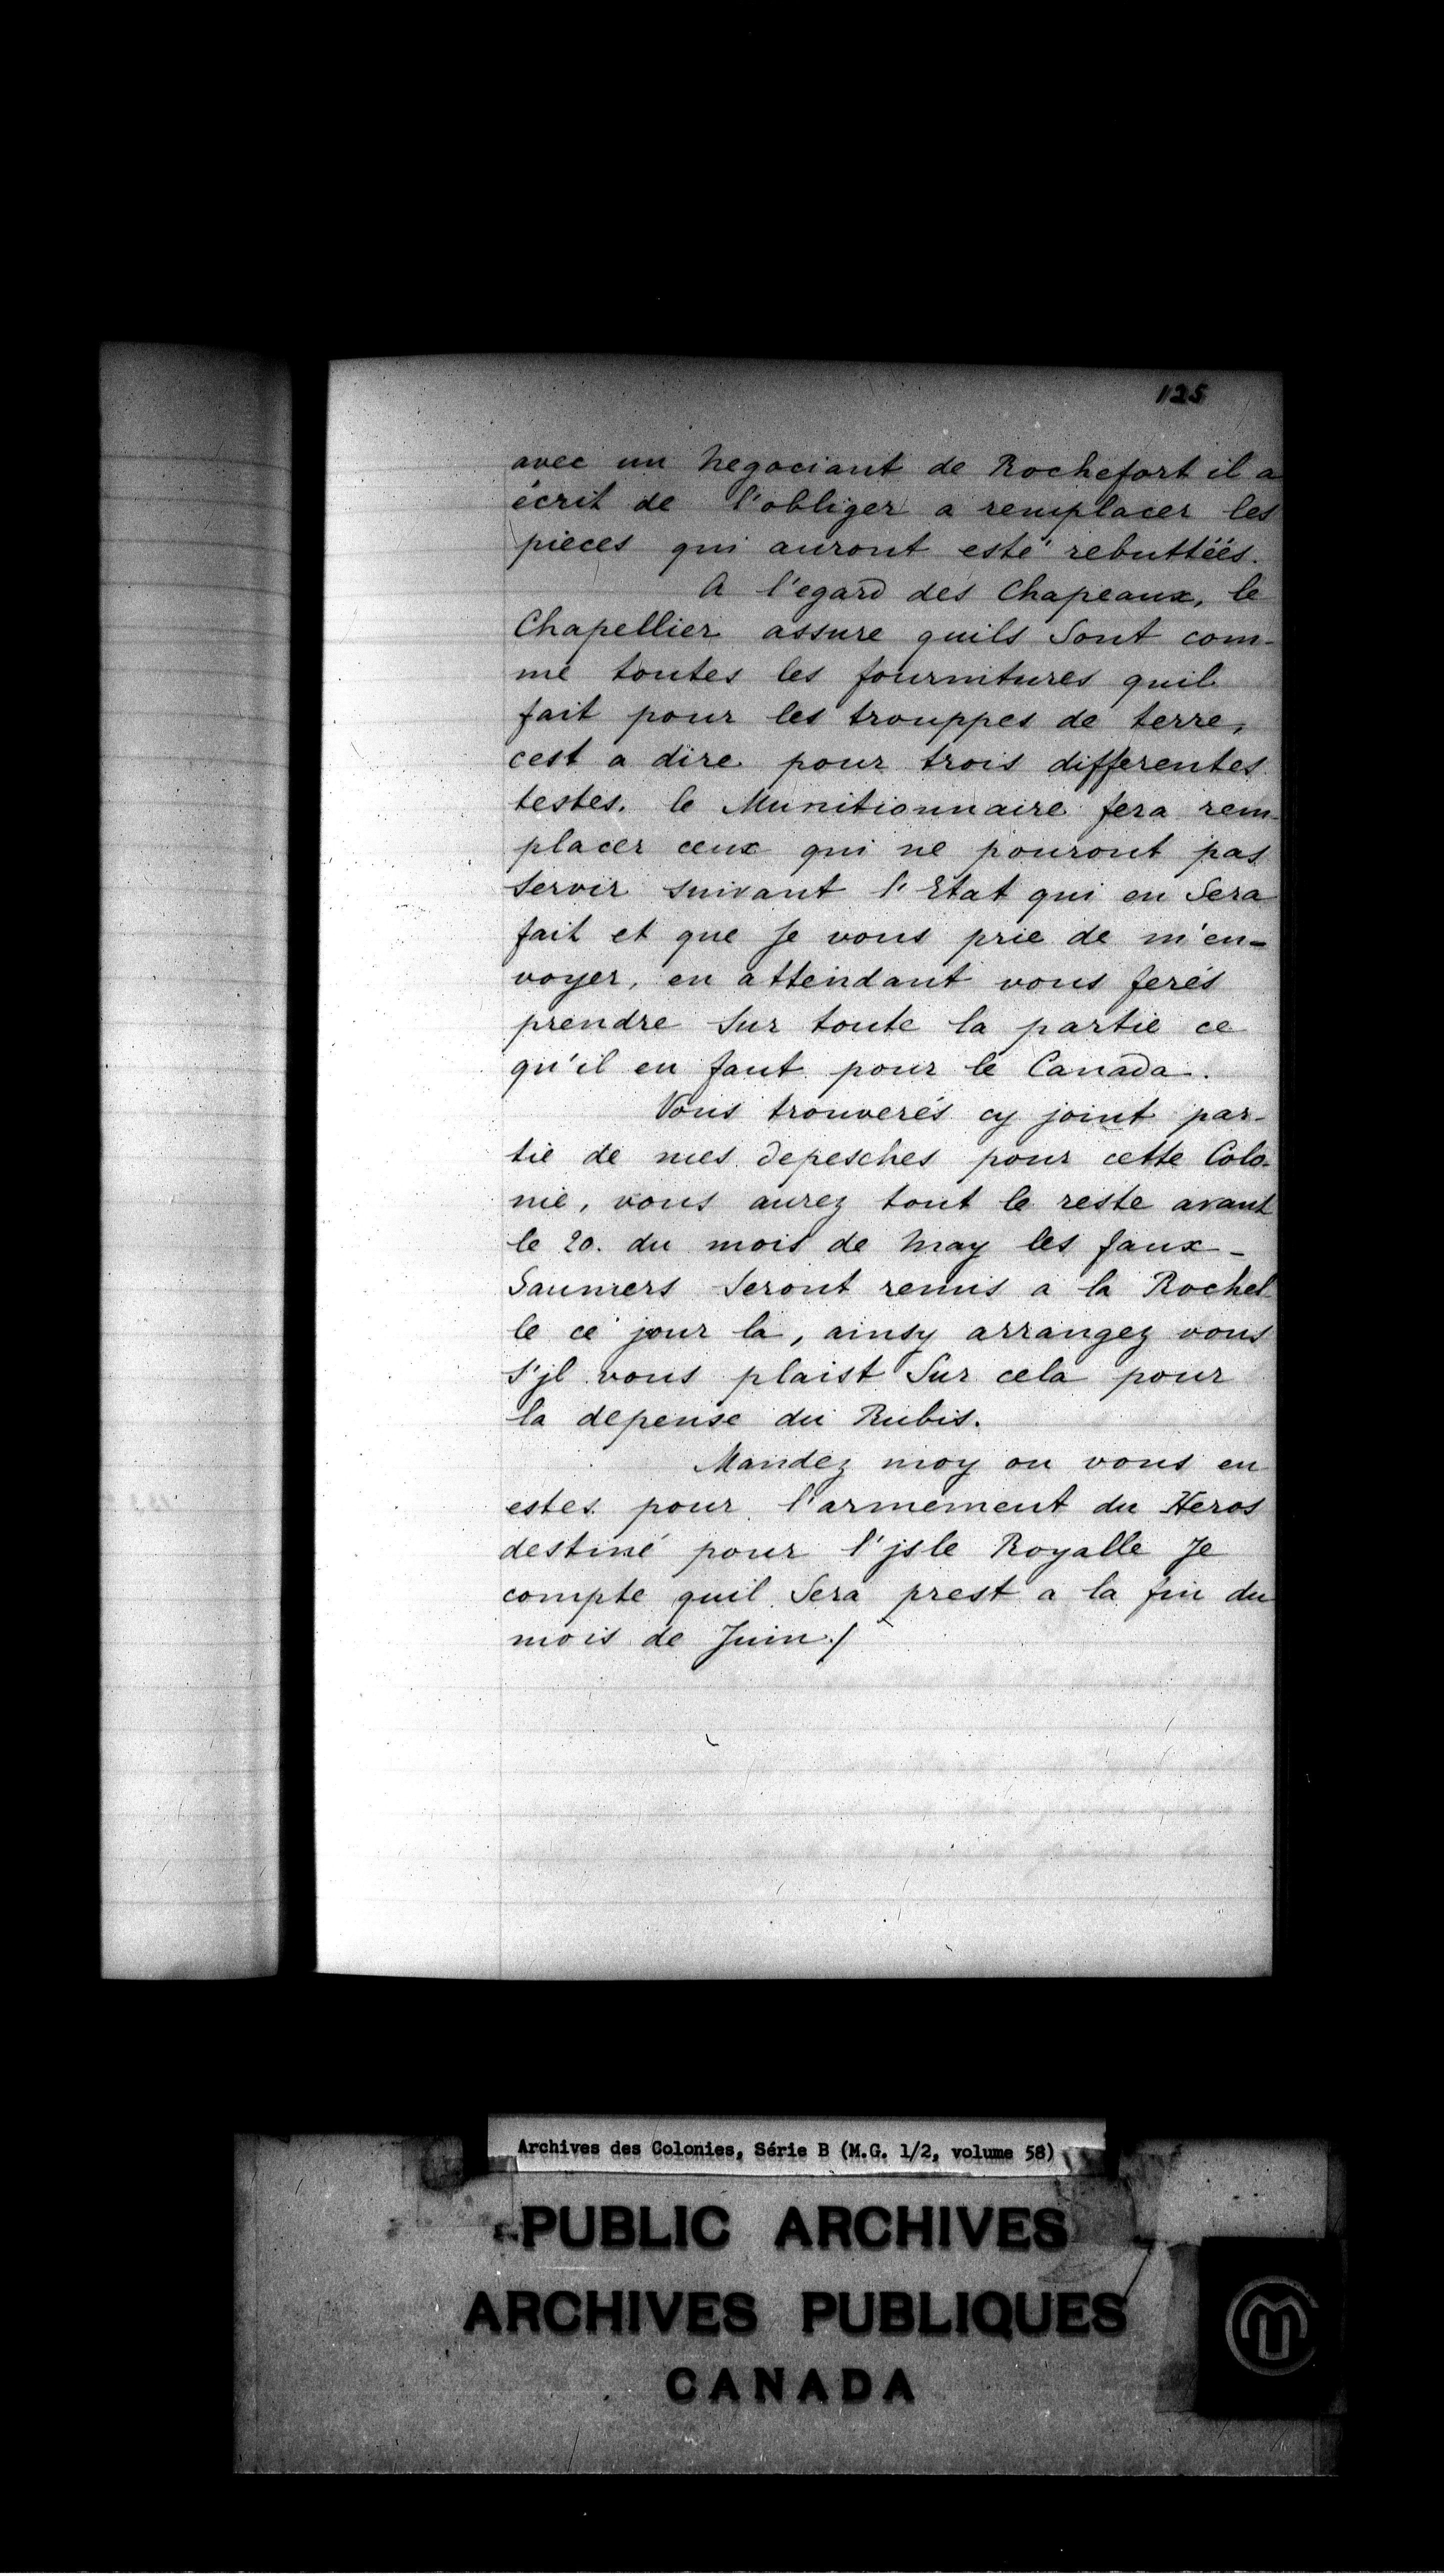 125
avec un Negociant de Rochefort il a
écrit de l'obliger a remplacer les
pieces qui auront esté rebuttéés.
A l'egard des Chapeaux, le
Chapellier assure quils Sont com-
me toutes les fournitures quil
fait pour les trouppes de terre,
cest a dire pour trois differentes
testes. le Munitionnaire fera rem-
placer ceux qui ne pouront pas
servir suivant l'Etat qui en Sera
fait et que Je vous prie de m'en-
voyer, en attendant vous ferés
prendre Sur toute la partie ce
qu'il en faut pour le Canada.
Vous trouverés cy joint par-
tie de mes depesches pour cette Colo-
nie, vous aurez tout le reste avant
le 20. du mois de May les faux-
Sauniers Seront remis a la Rochel-
le ce jour la, ainsy arrangez vous
S'jl vous plaist Sur cela pour
la depense du Rubis.
Mandez moy ou vous en
estes pour l'armement du Heros
destiné pour l'jsle Royalle Je
compte quil Sera prest a la fin du
mois de Juin./
Archives des Colonies, Série B (M.G. 1/2, volume 58)
PUBLIC ARCHIVES
ARCHIVES PUBLIQUES
CANADA